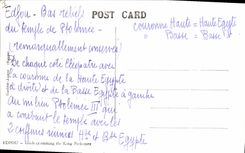 Edfou - Bas reliefs
du temple de Ptolémée -
remarquablement conservé
De chaque côté Cléopatre avec
la couronne de la Haute Egypte
à droite et de la Basse Egypte à gauche
Au milieu Ptolémée III qui
a construit le temple avec les
2 coiffures réunies Hte et Bse Egypte
POST CARD
couronne Haute = Haute Egypte
" Basse = Basse "
EDFOU